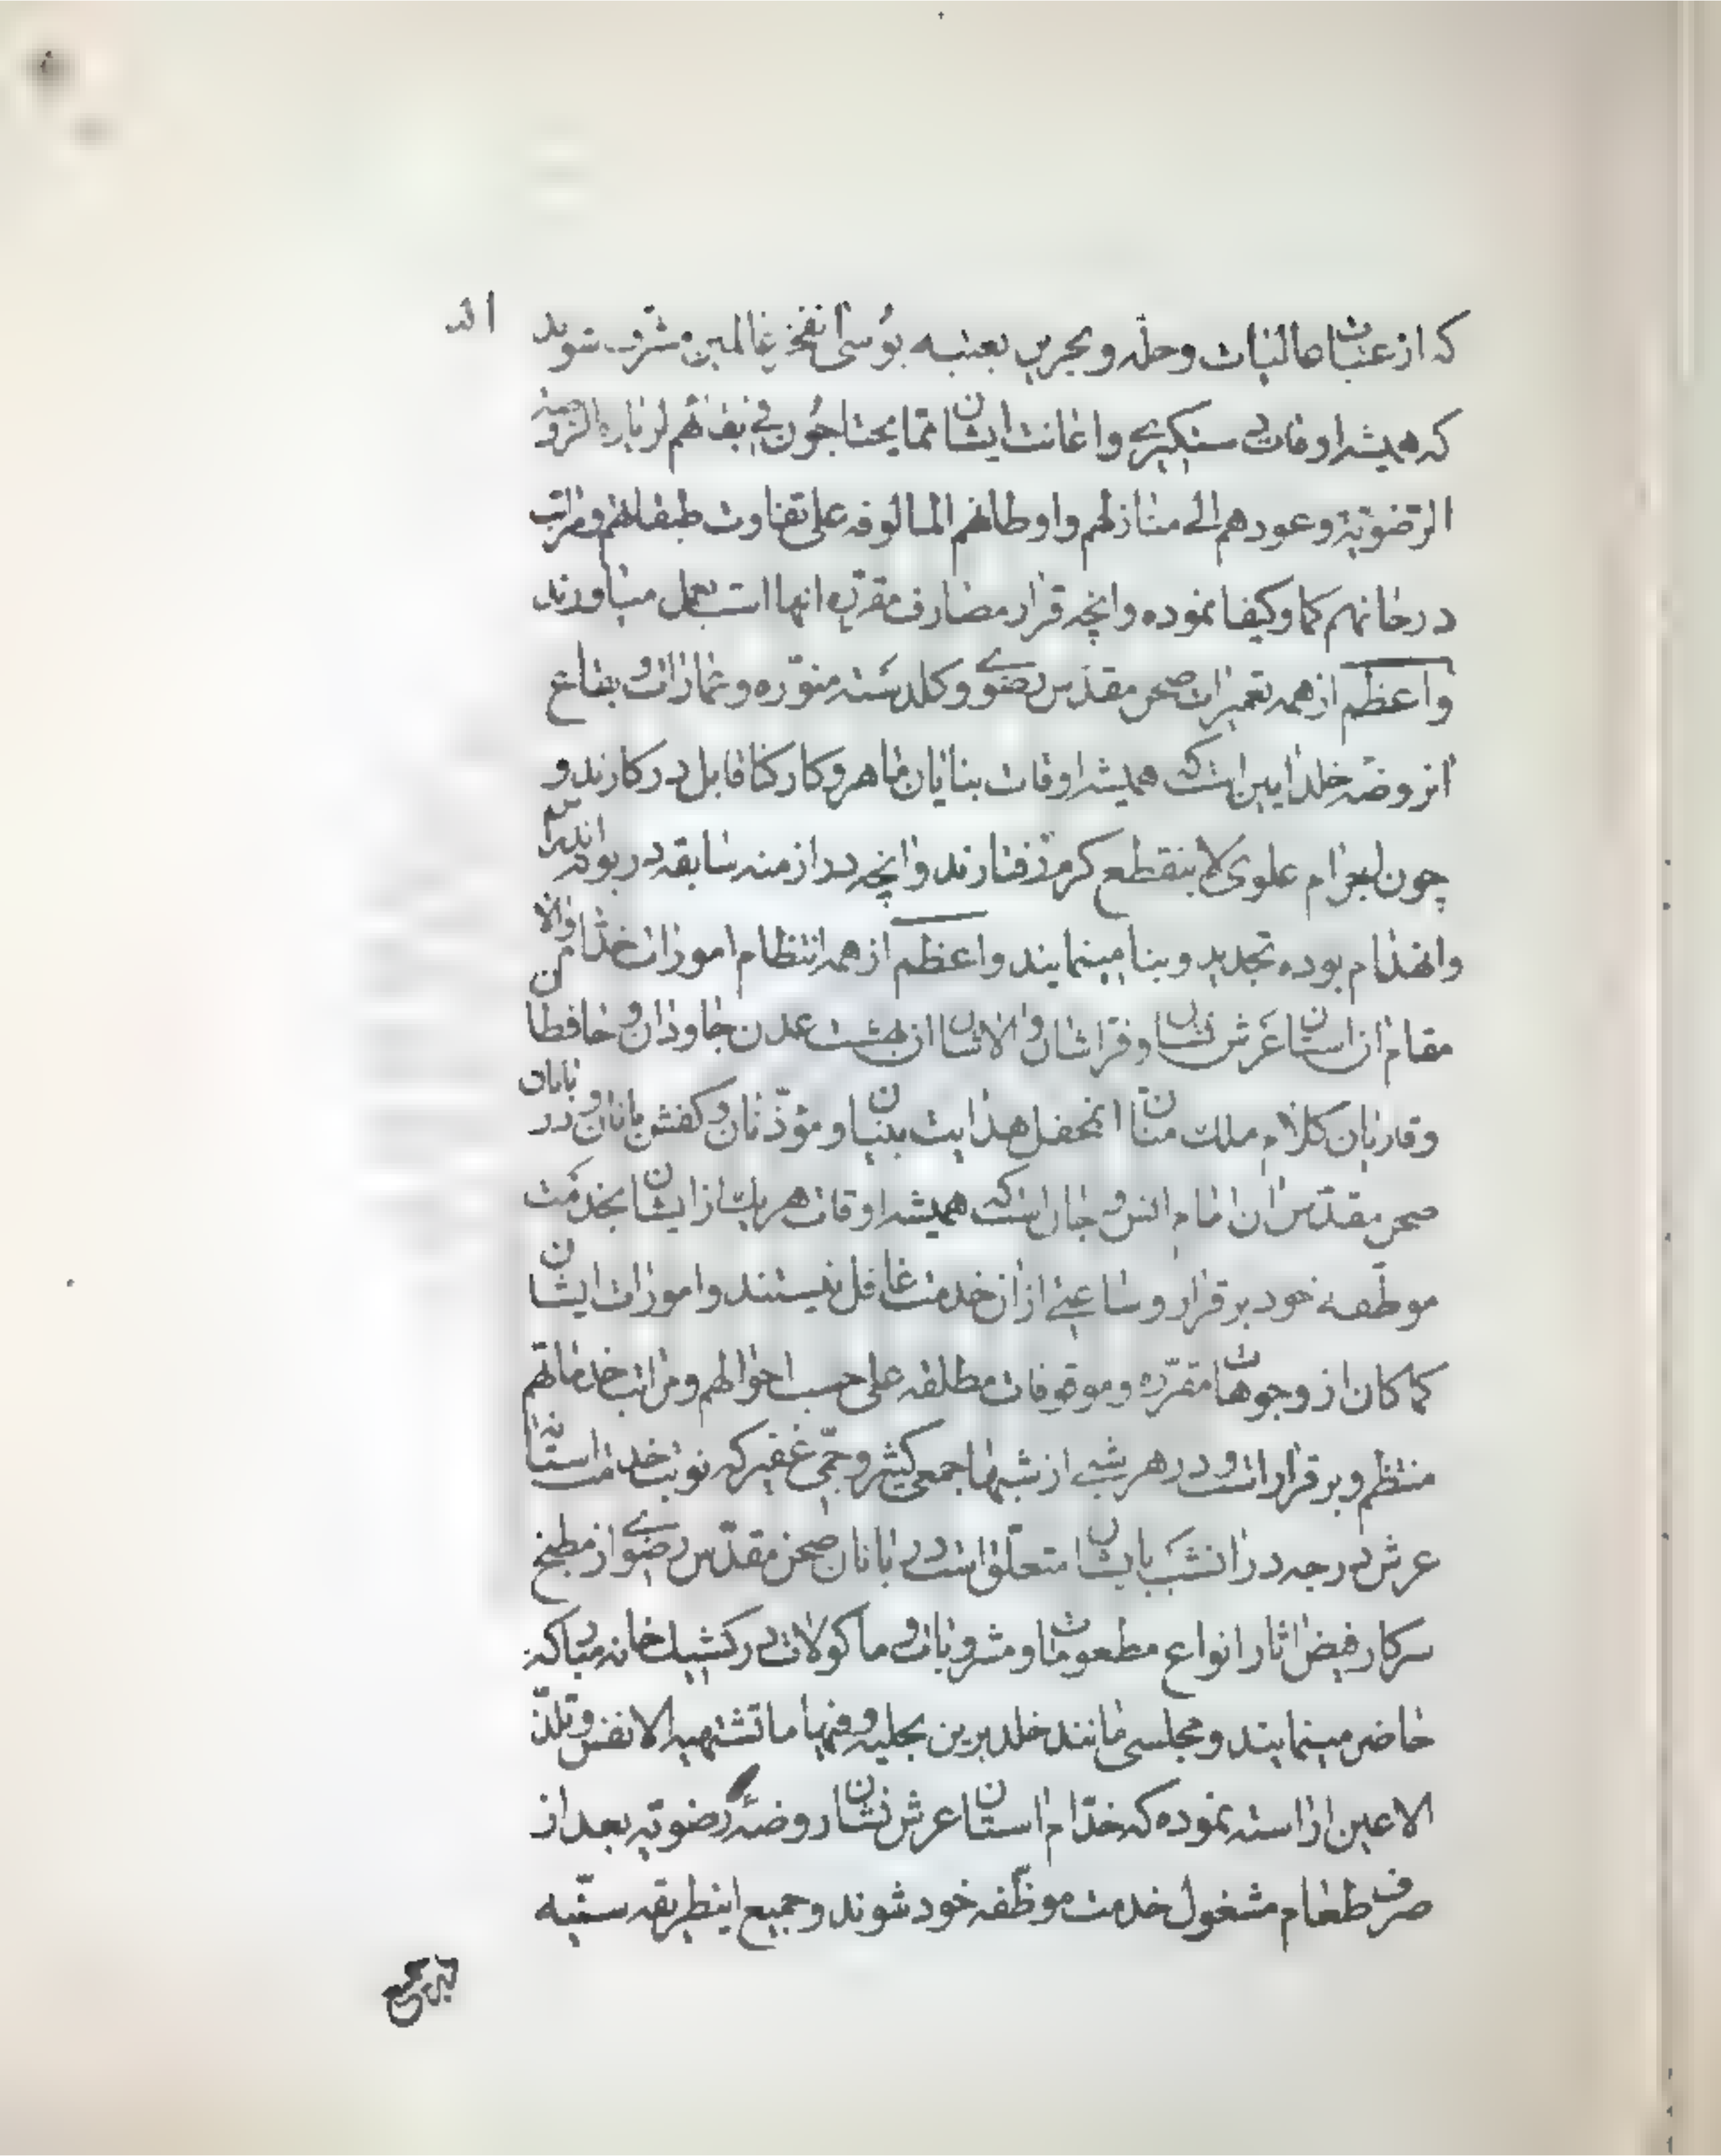 که از عتبات عالیات و حله و بحرین بعتبه بوسی آنفخر عالمین مشرف شوند
که همیشه اوقات دستگیری و اعانت ایشان مما یحتاجون فی نفقاتهم لزیارة الروضة
الرضویة و عودهم الی منازلهم و اوطانهم المالوفه علی تفاوت طبقاتهم و مراتب
درجاتهم کما و کیفا نموده و آنچه قرار مصارف مقرره آنها است بعمل میاورند
و اعظم از همه تعمیرات صحن مقدس رضوی و کلدسته منوره و عمارات و بقاع
انروضه خلد ایین است که همیشه اوقات بنایان ماهر و کارکنان قابل در کارند و
چون لعزام علوی لا ینقطع کرم رفتارند و آنچه در ازمنه سابقه در بوته اندراس
و انهدام بوده تجدید و بنا مینمایند و اعظم از همه انتظام امورات خدام والا
مقام ان استان عرش نشان و فراشان والاشان ان بهشت عدن جاودان و حافظان
و قاریان کلام ملک منان انمحفل هدایت بنیان و مؤذنان و کفش بانان و در بانان
صحن مقدس ان امام انس و جان است که همیشه اوقات هر یک از ایشان بخدمت
موظفه خود برقرار و ساعتی از ان خدمت غافل نیستند و امورات ایشان
کما کان از وجوهات مقرره و موقوفات مطلقه علی حسب احوالهم و مراتب خدماتهم
منتظم و برقرار است و در هر شبی از شبها جمعی کثیر و جمی غفیر که نوبت خدمت استانه
عرش درجه در انشب بایشان متعلق است در بانان صحن مقدس رضوی از مطبخ
سرکار فیض اثار انواع مطعومات و مشروبات و ماکولات در کشیک خانه مبارکه
حاضر مینمایند و مجلسی مانند خلد برین بحلیه و فیها ما تشتهیه الانفس و تلذ
الاعین اراسته نموده که خدام استان عرش نشان روضهٔ رضویه بعد از
صرف طعام مشغول خدمت موظفه خود شوند و جمیع اینطریقه سنیه